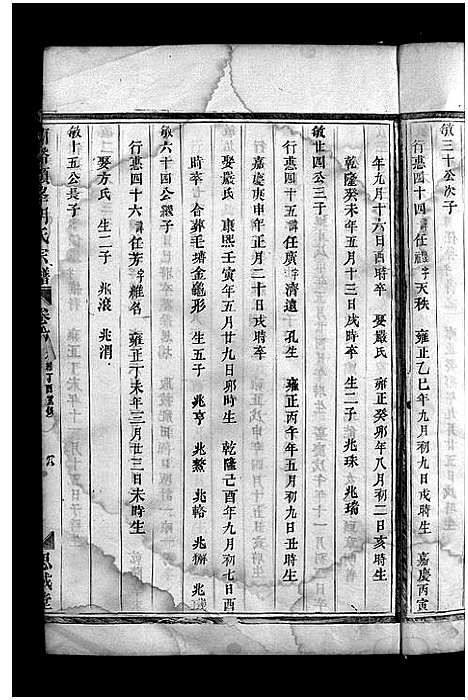 敏三十公次子
行憲四十四諱仕禮字天秩 雍正乙巳年九月初九日戌時生 嘉慶丙寅
年九月十六日酉時卒 娶嚴氏 雍正癸卯年八月初二日亥時生
乾隆癸未年五月十三日戌時卒 生二子 兆珠 兆瑞
敏廿四公三子
行憲四十五諱任廣字清遠 孔生 雍正丙午年五月初九日丑時生
嘉慶庚申年正月二十日戌時卒
娶嚴氏 康熙壬寅年五月廿九日卯時生 乾隆己酉年九月初七日酉
時卒 合葬毛塘金龜形 生五子 兆亨 兆鰲 兆輅 兆獬 兆
敏六十四公繼子
行憲四十六諱任芳字維名 雍正丁未年三月廿三日未時生
娶方氏 生二子 兆滾 兆渭
敏十五公長子
胡氏宗譜 卷六 思誠堂